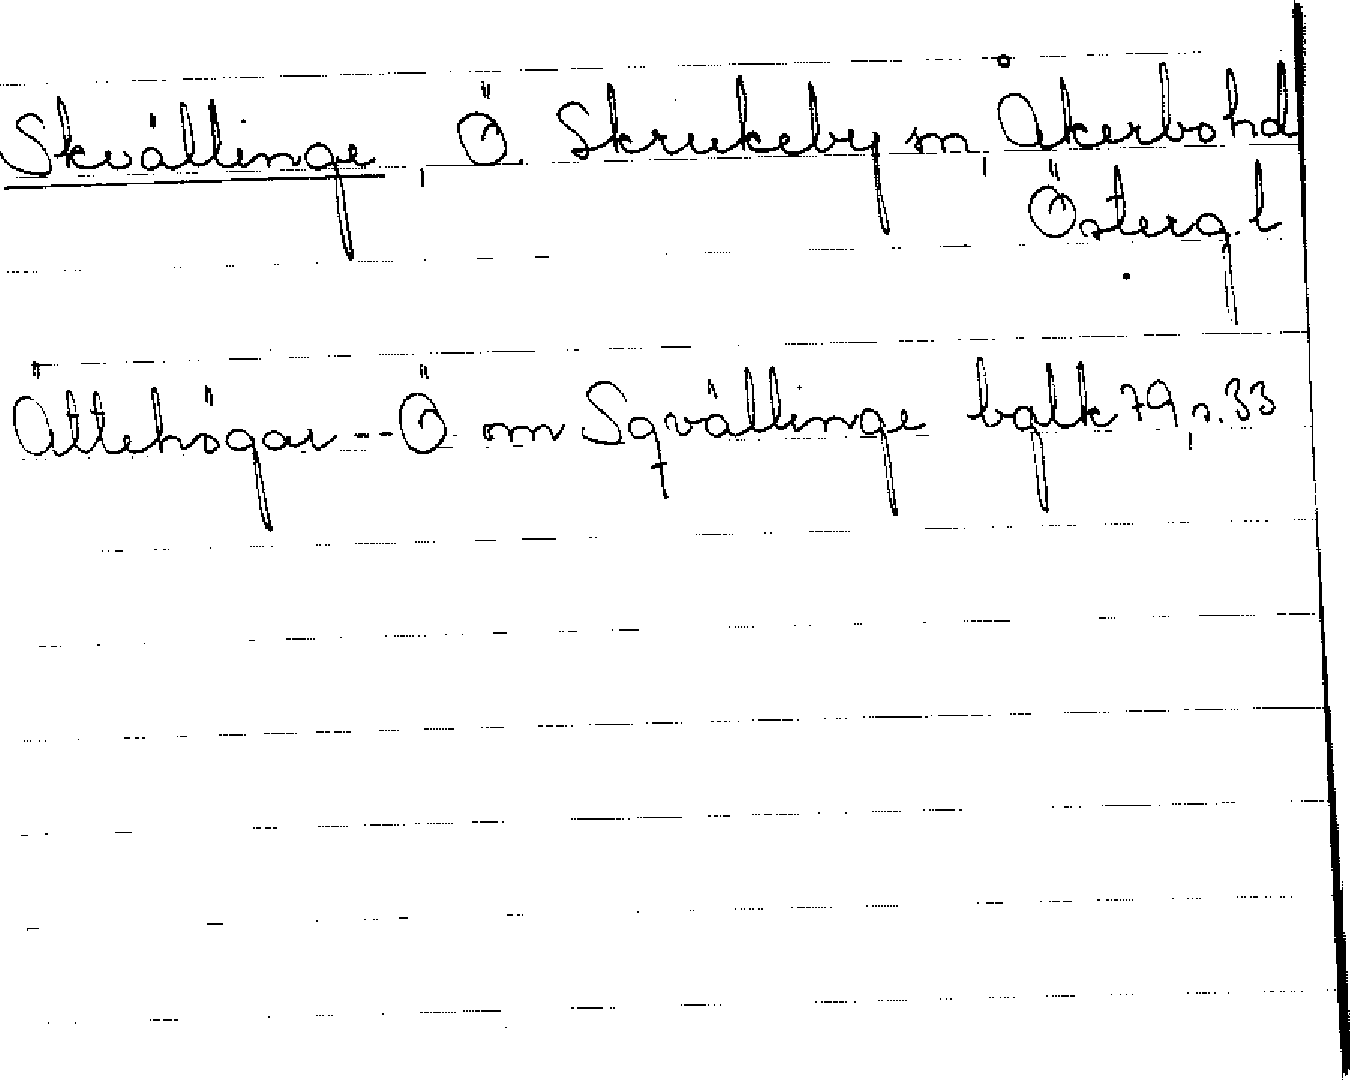 Skvällinge, Ö Skrukeby sn, Åkerbo hd
Österg. l
Ättehögar -- Ö om Sqvällinge bglk 79, s. 33